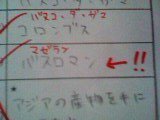 バスコ・ダ・ガマ
コロンブス
マゼラン
バスロマン ← !!
* アジアの産物を手に